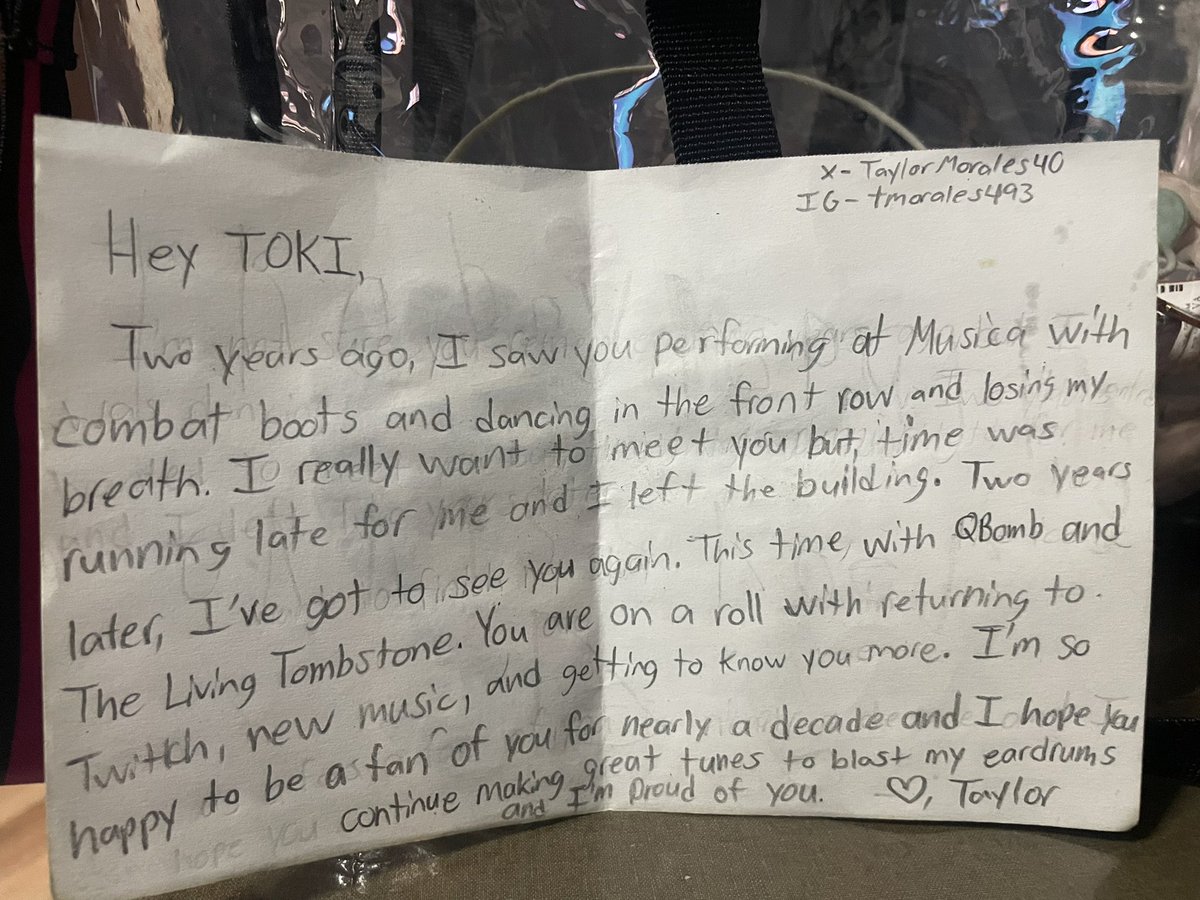 X- TaylorMorales40
IG- tmorales493
Hey TOKI,
Two years ago, I saw you performing at Musica with
combat boots and dancing in the front row and losing my
breath. I really want to meet you but, time was
running late for me and I left the building. Two years
later, I've got to see you again. This time, with QBomb and
The Living Tombstone. You are on a roll with returning to
Twitch, new music, and getting to know you more. I'm so
happy to be a fan of you for nearly a decade and I hope you
continue making great tunes to blast my eardrums
and I'm proud of you. ♡, Taylor